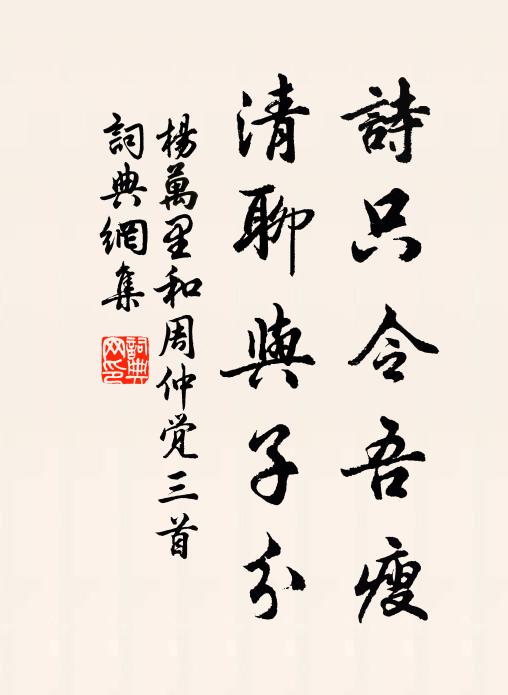 詩只令吾瘦
清聊與子分
楊萬里和周仲觉三首
詞典網集
詞典網印